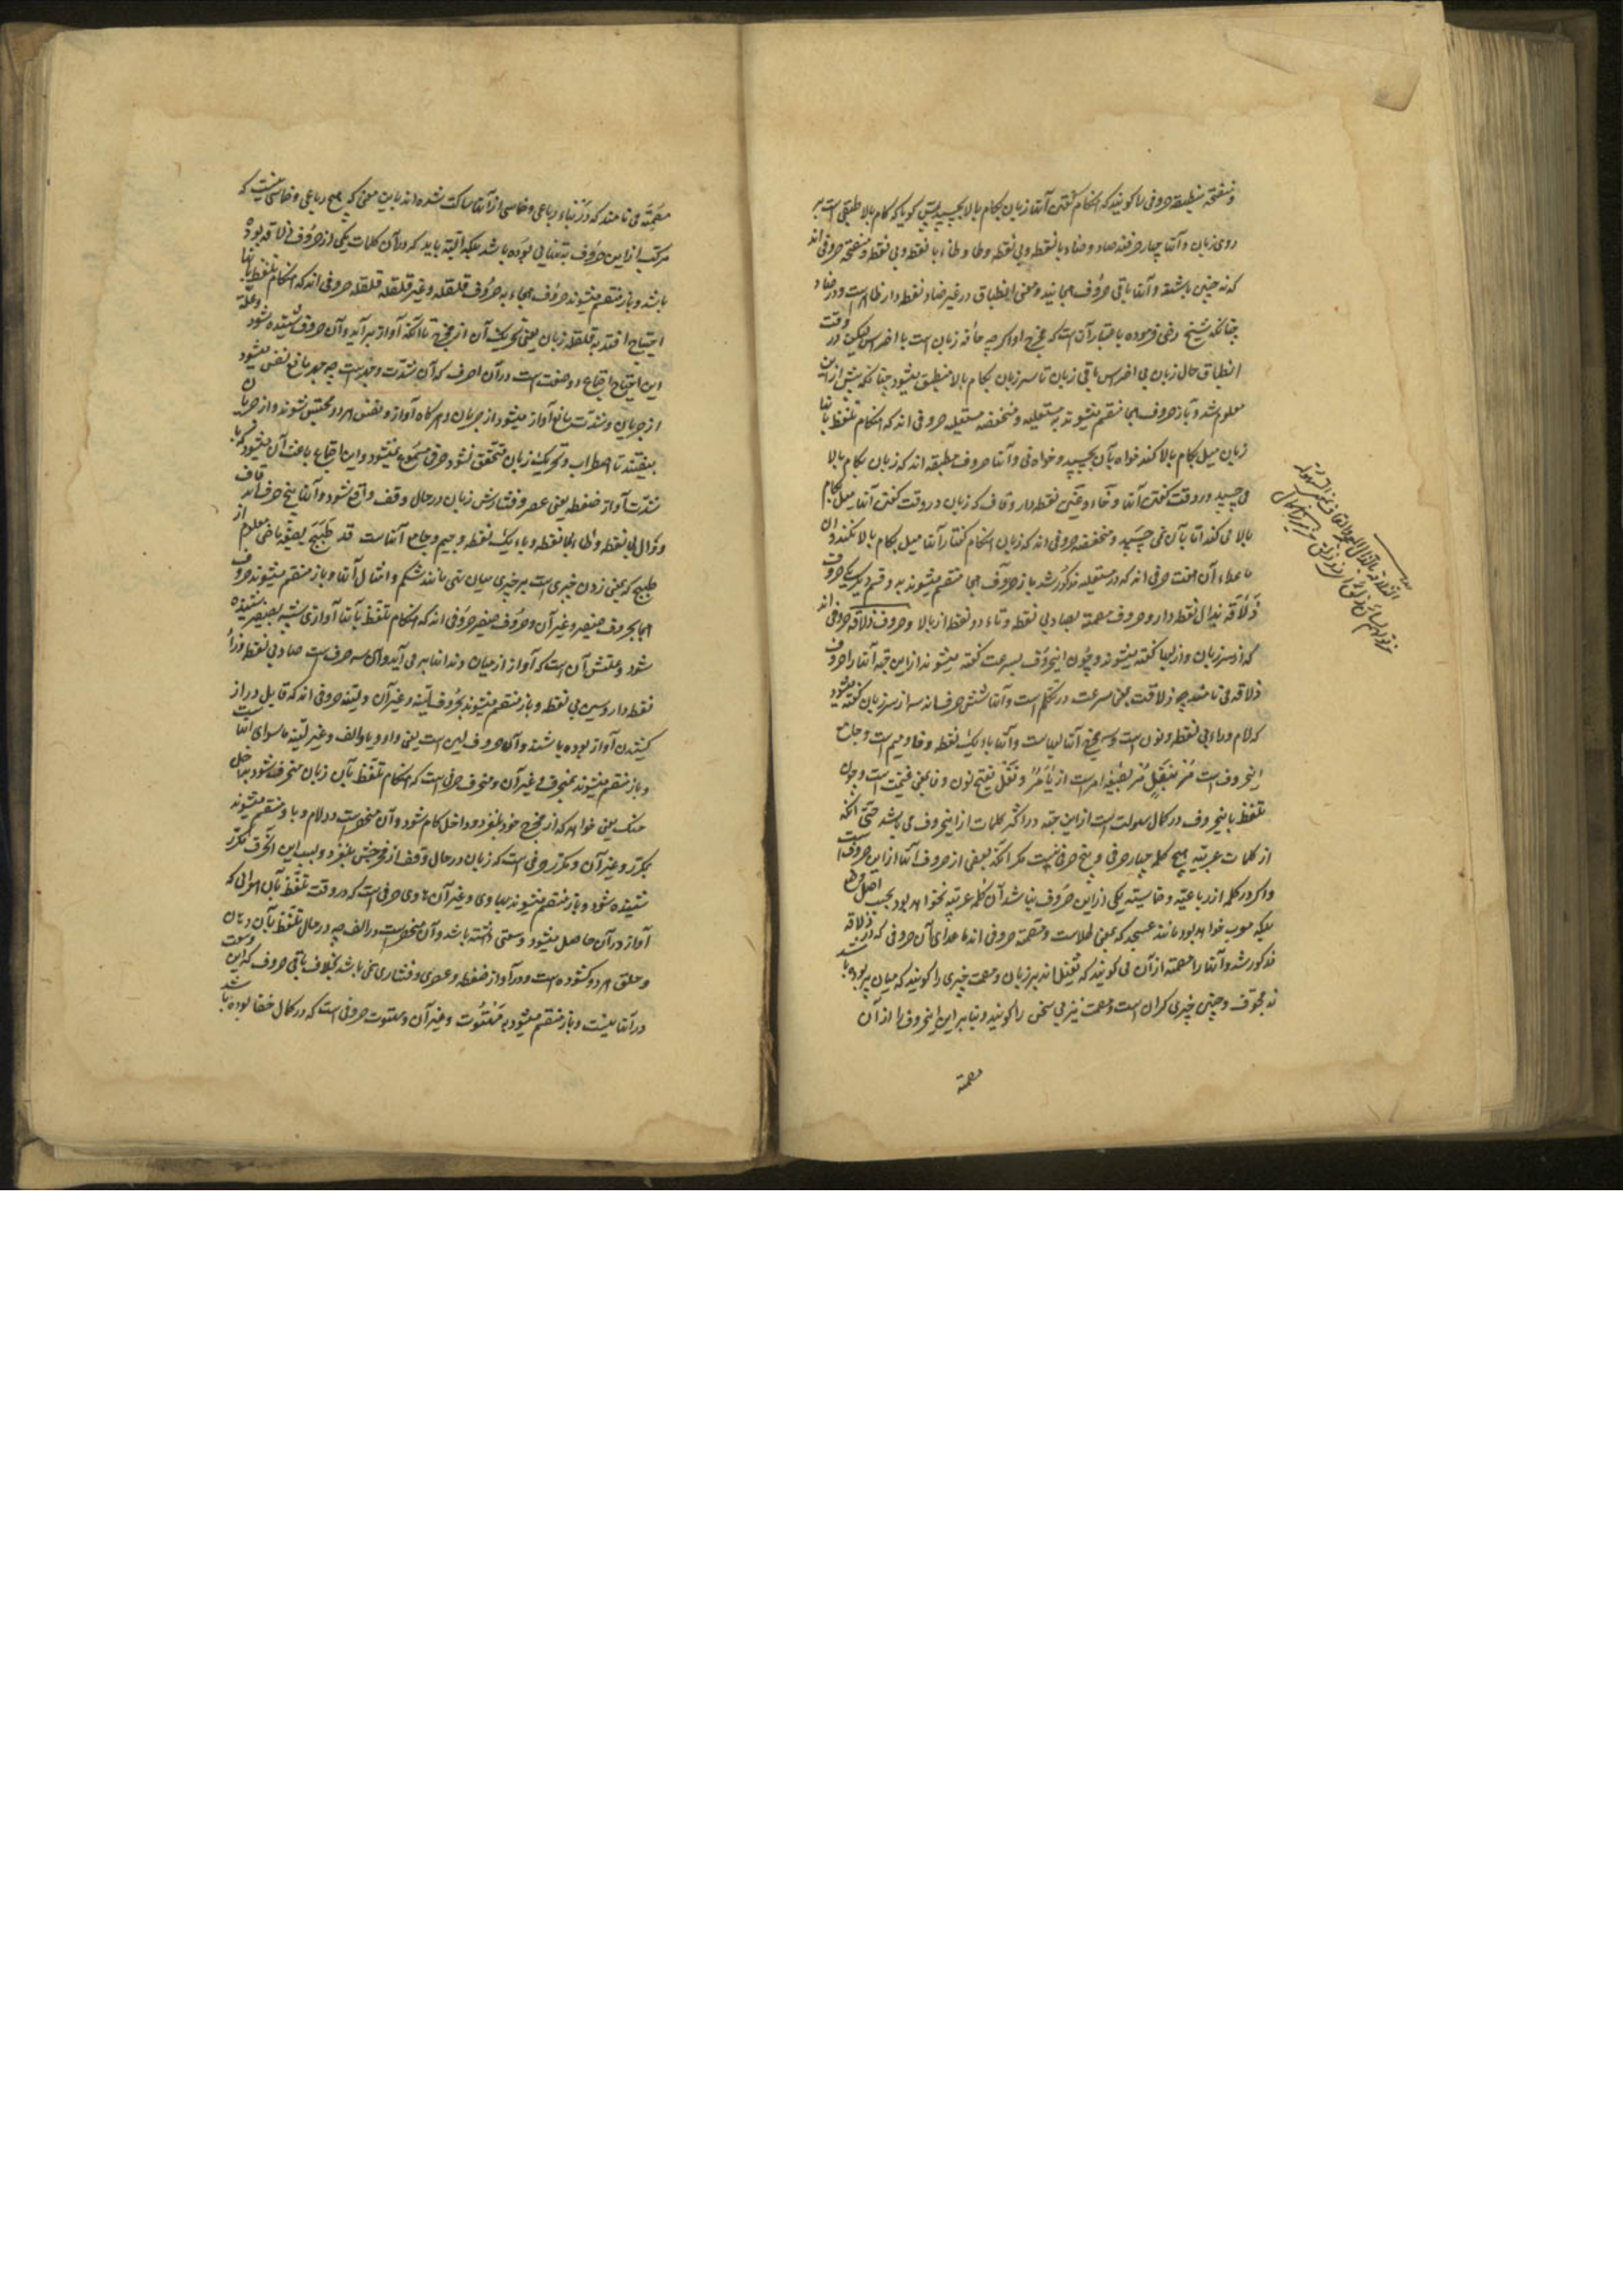 و منفتحه مطبقه حروفی را گویند که هنگام گفتن آنها زبان بکام بالا بچسبد پس گویا که کام بالا طبقی است بر
روی زبان و آنها چهار حرفند صاد و ضاد با نقطه و بی نقطه و طا و ظاء با نقطه و بی نقطه و منفتحه حروفی اند
که نه چنین باشند و آنها باقی حروف هجا اند و معنی انطباق در غیر ضاد نقطه دار ظاهر است و در ضاد
چنانکه شیخ رضی فرموده باعتبار آن است که مخرج او اگر چه حافه زبان است با اضراس لیکن در وقت
انطباق حال زبان بی اضراس باقی زبان تا سر زبان بکام بالا منطبق میشود چنانکه پیش ازین
معلوم شد و باز حروف هجا منقسم میشوند به مستعلیه و منخفضه مستعلیه حروفی اند که هنگام تلفظ بآنها
زبان میل بکام بالا کند خواه بآن بچسپد و خواه نی و آنها حروف مطبقه اند که زبان بکام بالا
می چسپد در وقت گفتن آنها و خاء و غین نقطه دار و قاف که زبان در وقت گفتن آنها میل بکام
بالا می کند اما بآن نمی چسپد و منخفضه حروفی اند که زبان هنگام گفتار آنها میل بکام بالا نکند و آن
ماعداء آن هفت حرفی اند که در مستعلیه مذکور شد باز حروف هجا منقسم میشوند به دو قسم دیگر یکی حروف
ذلاقه بذال نقطه دار و حروف مصمته بصاد بی نقطه و تاء دو نقطه از بالا و حروف ذلاقه حروفی اند
که از سر زبان و از لبها گفته میشوند و چون این حروف بسرعت گفته میشوند ازین جهة آنها را حروف
ذلاقه می نامند چه ذلاقت بمعنی سرعت در تکلم است و آنها شش حرفند سه از سر زبان گفته میشود
که لام و راء بی نقطه و نون است و سه مخرج آنها لبهاست و آنها باء یک نقطه و فا و میم است و جامع
این حروف است مُر بِنَفَلٍ مُر بصیغه امر است از یأمر و نفل بفتح نون و فا بمعنی غنیمت است و چون
تلفظ باین حروف در کمال سهولت است ازین جهة در اکثر کلمات ازین حروف می باشد حتی آنکه
از کلمات عربیه هیچ کلمه چهار حرفی و پنج حرفی نیست مگر آنکه بعضی از حروف آنها ازین حروف است
و اگر در کلمه از رباعیه و خماسیه یکی ازین حروف نباشد آن کلمه عربیه نخواهد بود بحسب اصل وضع
بلکه معرب خواهد بود مانند عسجد که بمعنی طلاست و مصمته حروفی اند ماعدای آن حروفی که در ذلاقه
مذکور شد و آنها را مصمته از آن می گویند که ثقیل اند بر زبان و مصمت چیزی را گویند که میان پر بوده باشد
نه مجوف و چنین چیزی گران است و مصمت نیز بی سخن را گویند و بنابراین این حروف را از آن
مصمته
مصمته می نامند که در بناء رباعی و خماسی از آنها ساکت شده اند باین معنی که هیچ رباعی و خماسی نیست که
مرکب ازین حروف به تنهایی بوده باشد بلکه البته باید که در آن کلمات یکی از حروف ذلاقه بوده
باشد و باز منقسم میشوند حروف هجاء به حروف قلقله و غیر قلقله قلقله حروفی اند که هنگام تلفظ بآنها
احتیاج افتد به قلقله زبان یعنی تحریک آن از مخرج تا آنکه آواز برآید و آن حروف شنیده شود و علة
این احتیاج اجتماع دو صفت است در آن احرف که آن شدت و جهر است چه جهر مانع نفس میشود
از جریان و شدت مانع آواز میشود از جریان و هرگاه آواز و نفس هر دو محتبس شوند و از جریان
بیفتند تا اضطراب و تحریک زبان متحقق نشود حرف مسموع نمیشود و این اجتماع باعث آن میشود که با
شدت آواز ضغطه یعنی عصر و فشارش زبان در حال وقف واقع شود و آنها پنج حرف اند قاف
و دال بی نقطه و طاء بی نقطه و باء یک نقطه و جیم و جامع آنهاست قد طبج بصیغه ماضی معلوم از
طبج که بمعنی زدن چیزی است بر چیزی میان تهی مانند شکم و امثال آنها و باز منقسم میشوند حروف
هجا بحروف صفیر و غیر آن و حروف صفیر حروفی اند که هنگام تلفظ بآنها آوازی شبیه بصفیر شنیده
شود و علتش آن است که آواز از میان دندانها بر می آید و آن سه حرف است صاد بی نقطه و زاء
نقطه دار و سین بی نقطه و باز منقسم میشوند بحروف لینه و غیر آن و لینه حروفی اند که قابل دراز
کشیدن آواز بوده باشند و آن حروف لین است یعنی واو و یا و الف و غیر لینه ماسوای آنهاست
و باز منقسم میشوند بمنحرف و غیر آن و منحرف حرفی است که هنگام تلفظ بآن زبان منحرف شود بداخل
حنک یعنی خواهد که از مخرج خود بلغزد و داخل کام شود و آن منحصر است در لام و باز منقسم میشوند
بمکرر و غیر آن و مکرر حرفی است که زبان در حال وقف از مخرجش بلغزد و بسبب این انحرف مکرر
شنیده شود و باز منقسم میشوند بهاوی و غیر آن هاوی حرفی است که در وقت تلفظ بآن هوائی که
آواز در آن حاصل میشود وسعتی داشته باشد و آن منحصر است در الف چه در حال تلفظ بآن دهان
و حلق هر دو گشوده است و در آواز ضغطه و عصری و فشاری نمی باشد بخلاف باقی حروف که این وسعت
در آنها نیست و باز منقسم میشود به مهتوت و غیر آن و مهتوت حروفی است که در کمال خفا بوده باشد